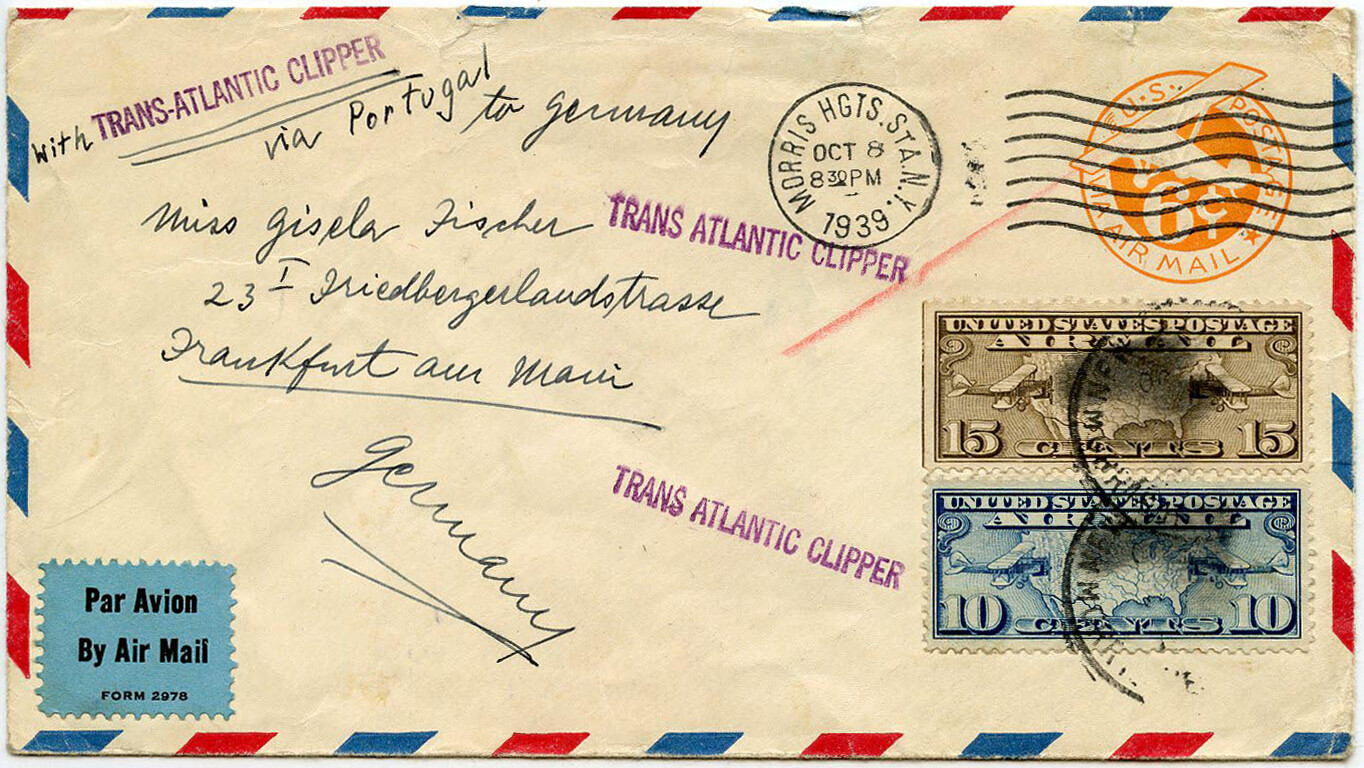 with TRANS-ATLANTIC CLIPPER
via Portugal to Germany
MORRIS HGTS. STA. N.Y.
OCT 8
8 30 PM
1939
U.S. POSTAGE
6¢
VIA AIR MAIL
Miss Gisela Fischer
TRANS ATLANTIC CLIPPER
23 I Friedbergerlandstrasse
Frankfurt am Main
Germany
UNITED STATES POSTAGE
AIR MAIL
15 CENTS 15
TRANS ATLANTIC CLIPPER
UNITED STATES POSTAGE
AIR MAIL
10 CENTS 10
Par Avion
By Air Mail
FORM 2978